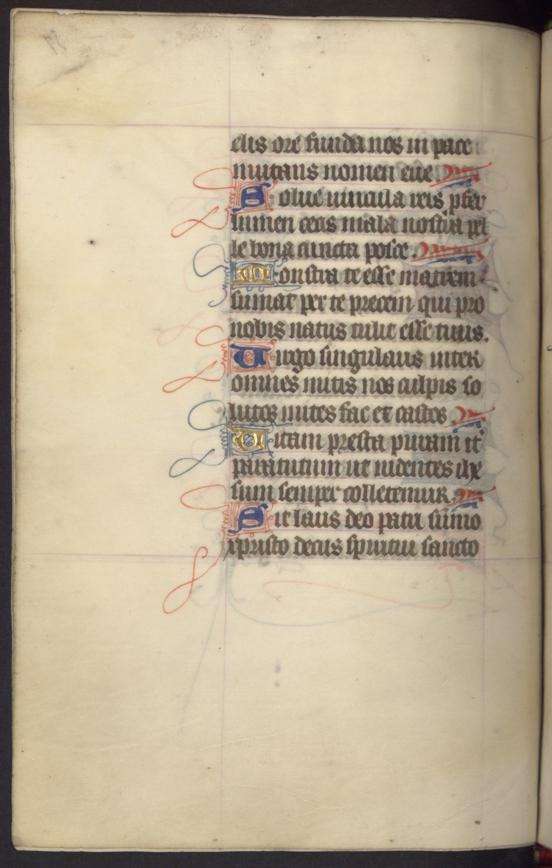 elis ore funda nos in pace
mutans nomen eve
Solve vincla reis pfer
lumen cecis mala nostra pel
le bona cuncta posce.
Monstra te esse matrem
sumat per te precem qui pro
nobis natus tulit esse tuus.
Virgo singularis inter
omnes mitis nos culpis so
lutos mites fac et castos
Vitam presta puram it
para tutum ut videntes ihe
sum semper colletemur
Sit laus deo patri sumo
xpristo decus spiritui sancto